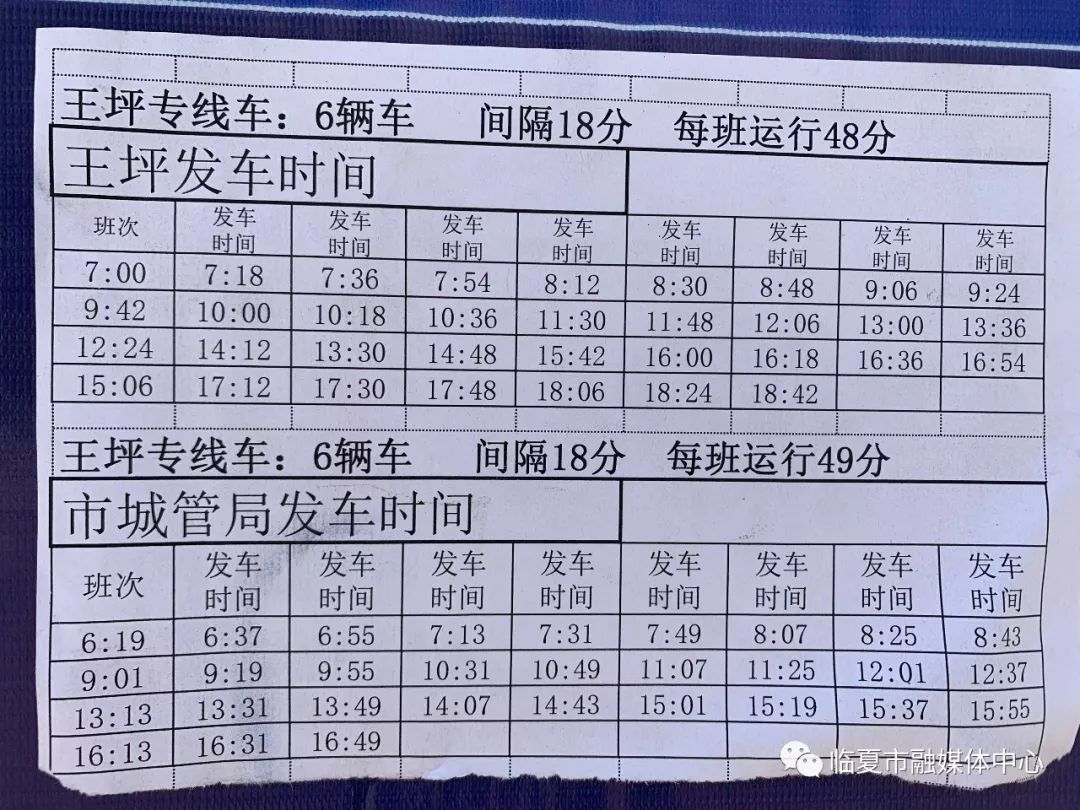 王坪专线车：6辆车 间隔18分 每班运行48分
王坪发车时间
班次 发车时间 发车时间 发车时间 发车时间 发车时间 发车时间 发车时间 发车时间
7:00 7:18 7:36 7:54 8:12 8:30 8:48 9:06 9:24
9:42 10:00 10:18 10:36 11:30 11:48 12:06 13:00 13:36
12:24 14:12 13:30 14:48 15:42 16:00 16:18 16:36 16:54
15:06 17:12 17:30 17:48 18:06 18:24 18:42
王坪专线车：6辆车 间隔18分 每班运行49分
市城管局发车时间
班次 发车时间 发车时间 发车时间 发车时间 发车时间 发车时间 发车时间 发车时间
6:19 6:37 6:55 7:13 7:31 7:49 8:07 8:25 8:43
9:01 9:19 9:55 10:31 10:49 11:07 11:25 12:01 12:37
13:13 13:31 13:49 14:07 14:43 15:01 15:19 15:37 15:55
16:13 16:31 16:49
临夏市融媒体中心